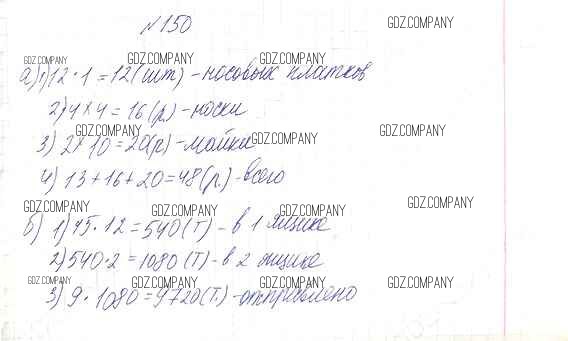 №150
GDZ.COMPANY
GDZ.COMPANY GDZ.COMPANY GDZ.COMPANY
а) 1) 12 · 1 = 12 (шт) - носовых платков
2) 4 × 4 = 16 (р) - носки
GDZ.COMPANY GDZ.COMPANY GDZ.COMPANY
3) 2 × 10 = 20 (р) - майки
4) 13 + 16 + 20 = 48 (р.) - всего
GDZ.COMPANY GDZ.COMPANY GDZ.COMPANY GDZ.COMPANY
б) 1) 45 · 12 = 540 (т) - в 1 ящике
2) 540 · 2 = 1080 (т) - в 2 ящике
GDZ.COMPANY GDZ.COMPANY GDZ.COMPANY GDZ.COMPANY
3) 9 · 1080 = 9720 (т.) - отправлено